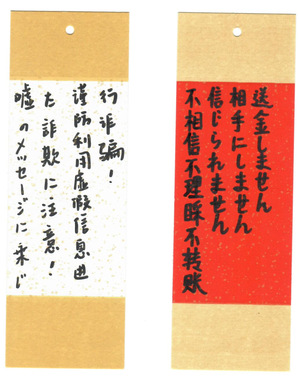 嘘のメッセージに乗じ
た詐欺に注意!
谨防利用虚假信息进
行诈骗!
不相信不理睬不转账
信じられません
相手にしません
送金しません